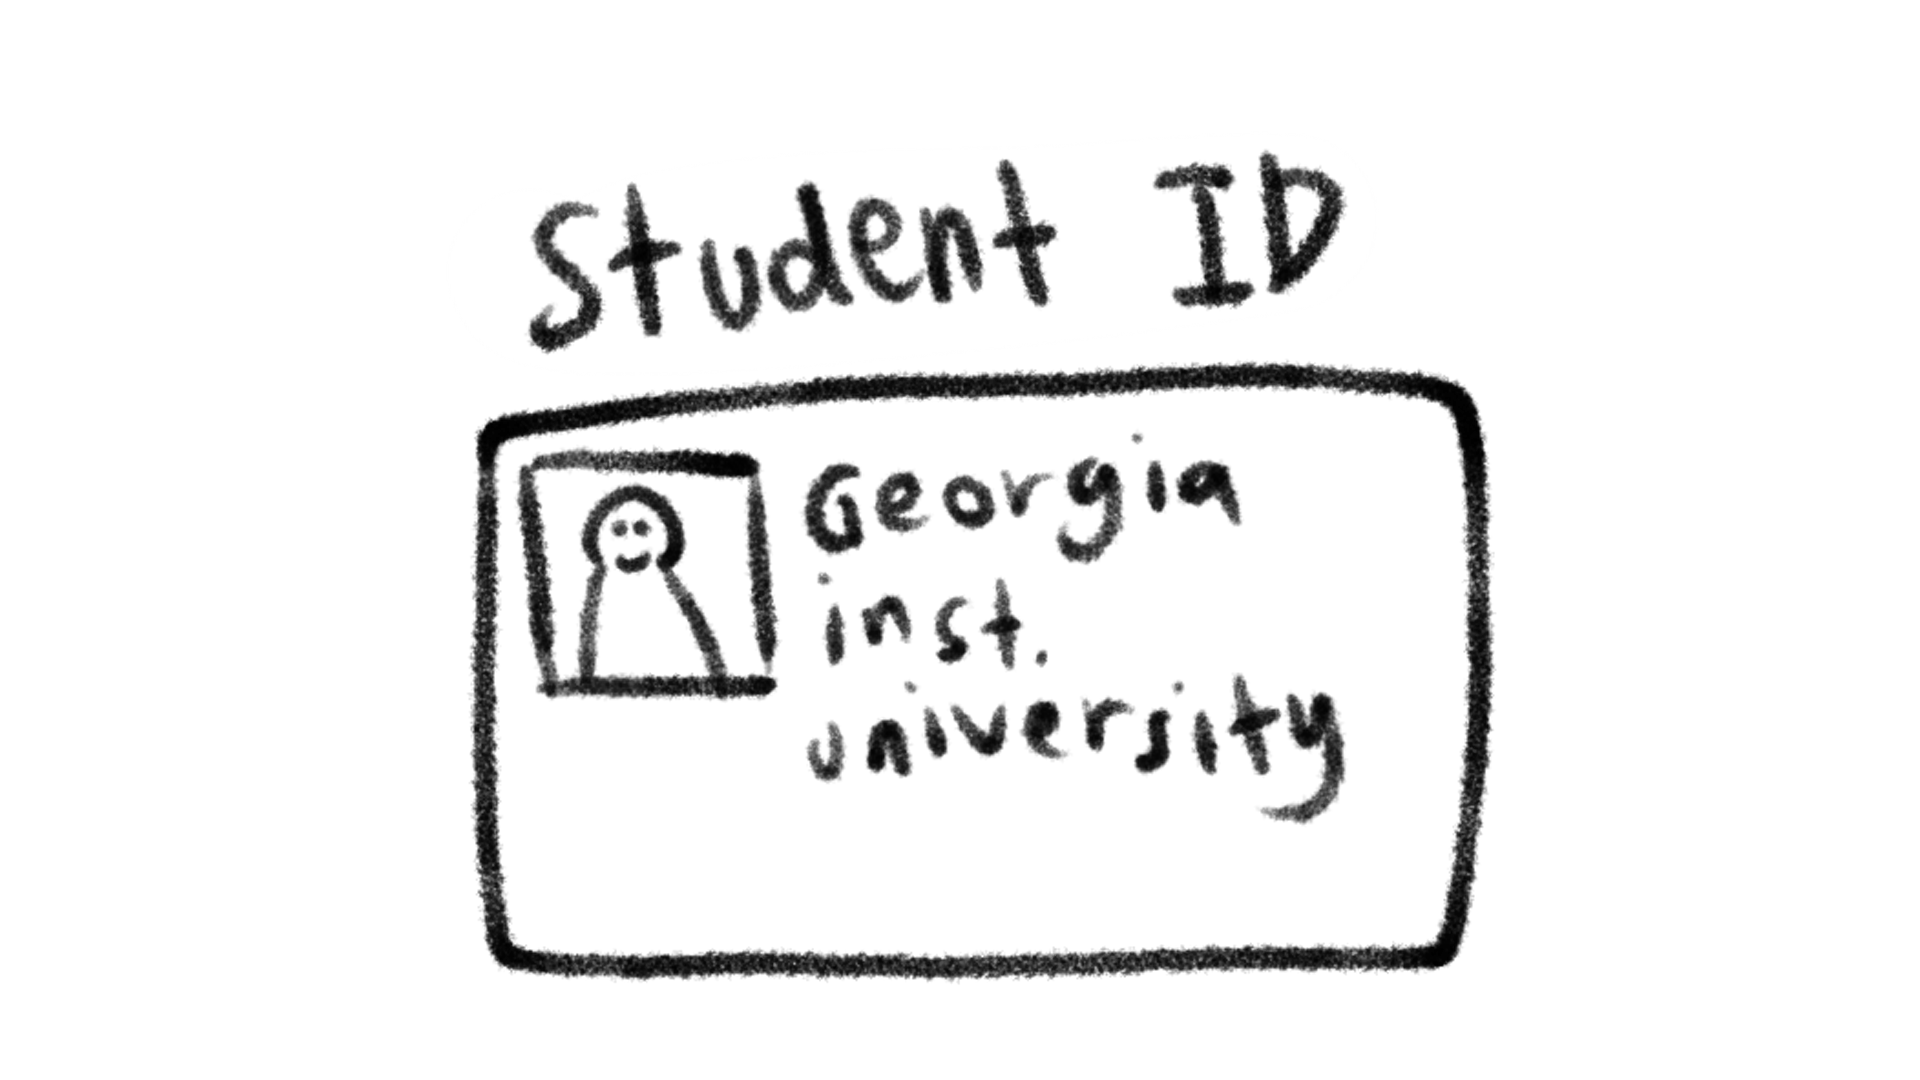 Student ID
Georgia
inst.
university